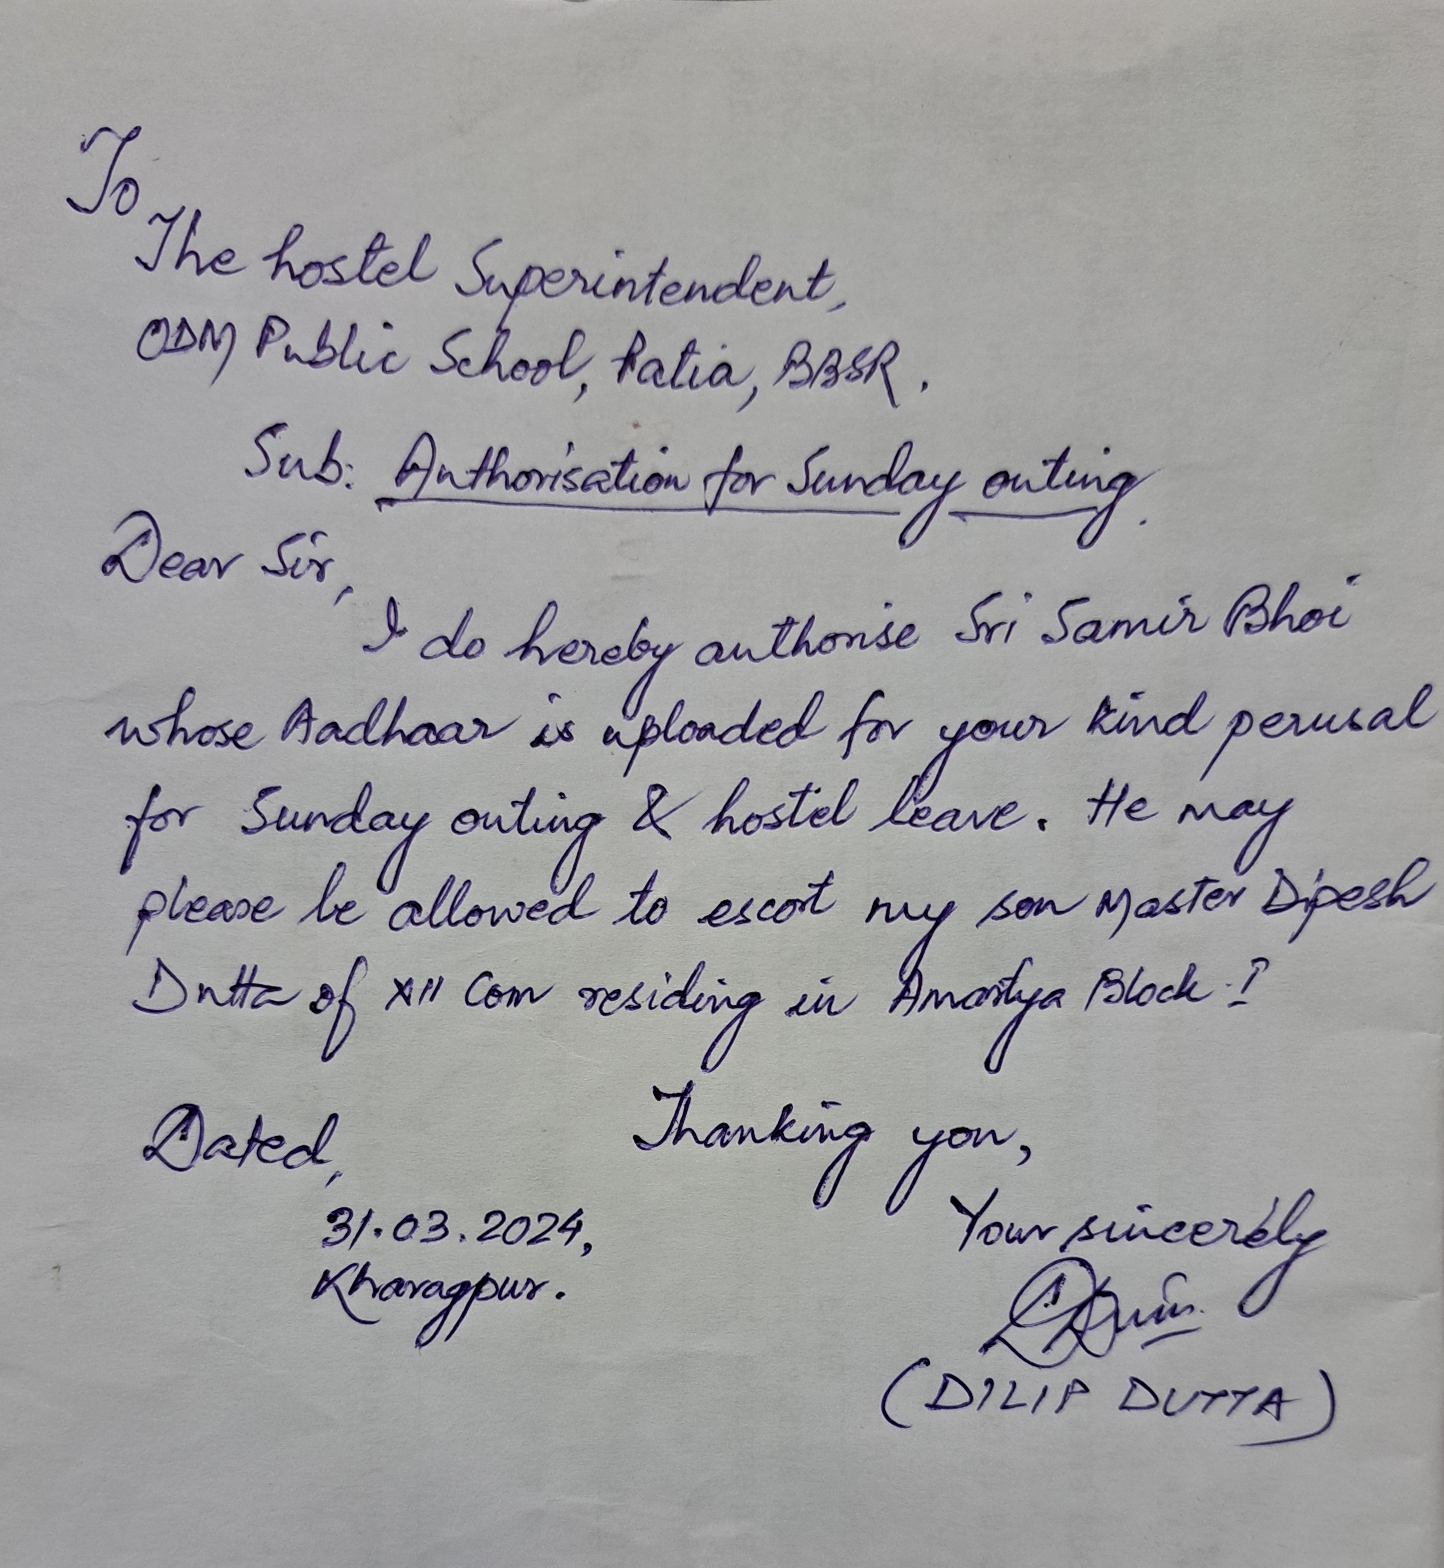 To
The hostel Superintendent,
ODM Public School, Patia, BBSR.
Sub: Authorisation for Sunday outing.
Dear Sir,
I do hereby authorise Sri Samir Bhoi
whose Aadhaar is uploaded for your kind perusal
for Sunday outing & hostel leave. He may
please be allowed to escort my son Master Dipesh
Dutta of XII Com residing in Amartya Block-I
Dated,
Thanking you,
31.03.2024,
Kharagpur.
Your sincerely
(DILIP DUTTA)